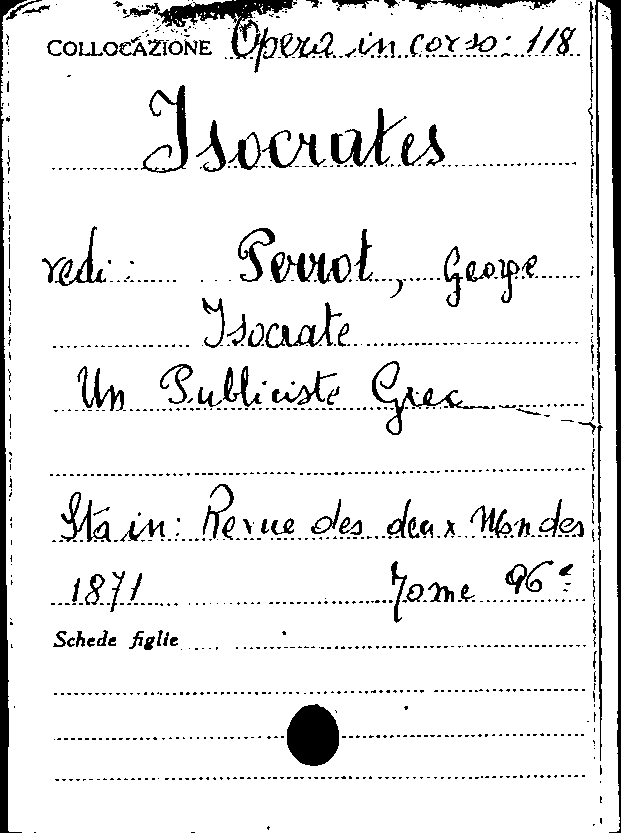 COLLOCAZIONE Opera in corso: 118
Isocrates
vedi: Perrot, George
Isocrate
Un Publiciste Grec
Sta in: Revue des deux Mondes
1871 Tome 96e
Schede figlie